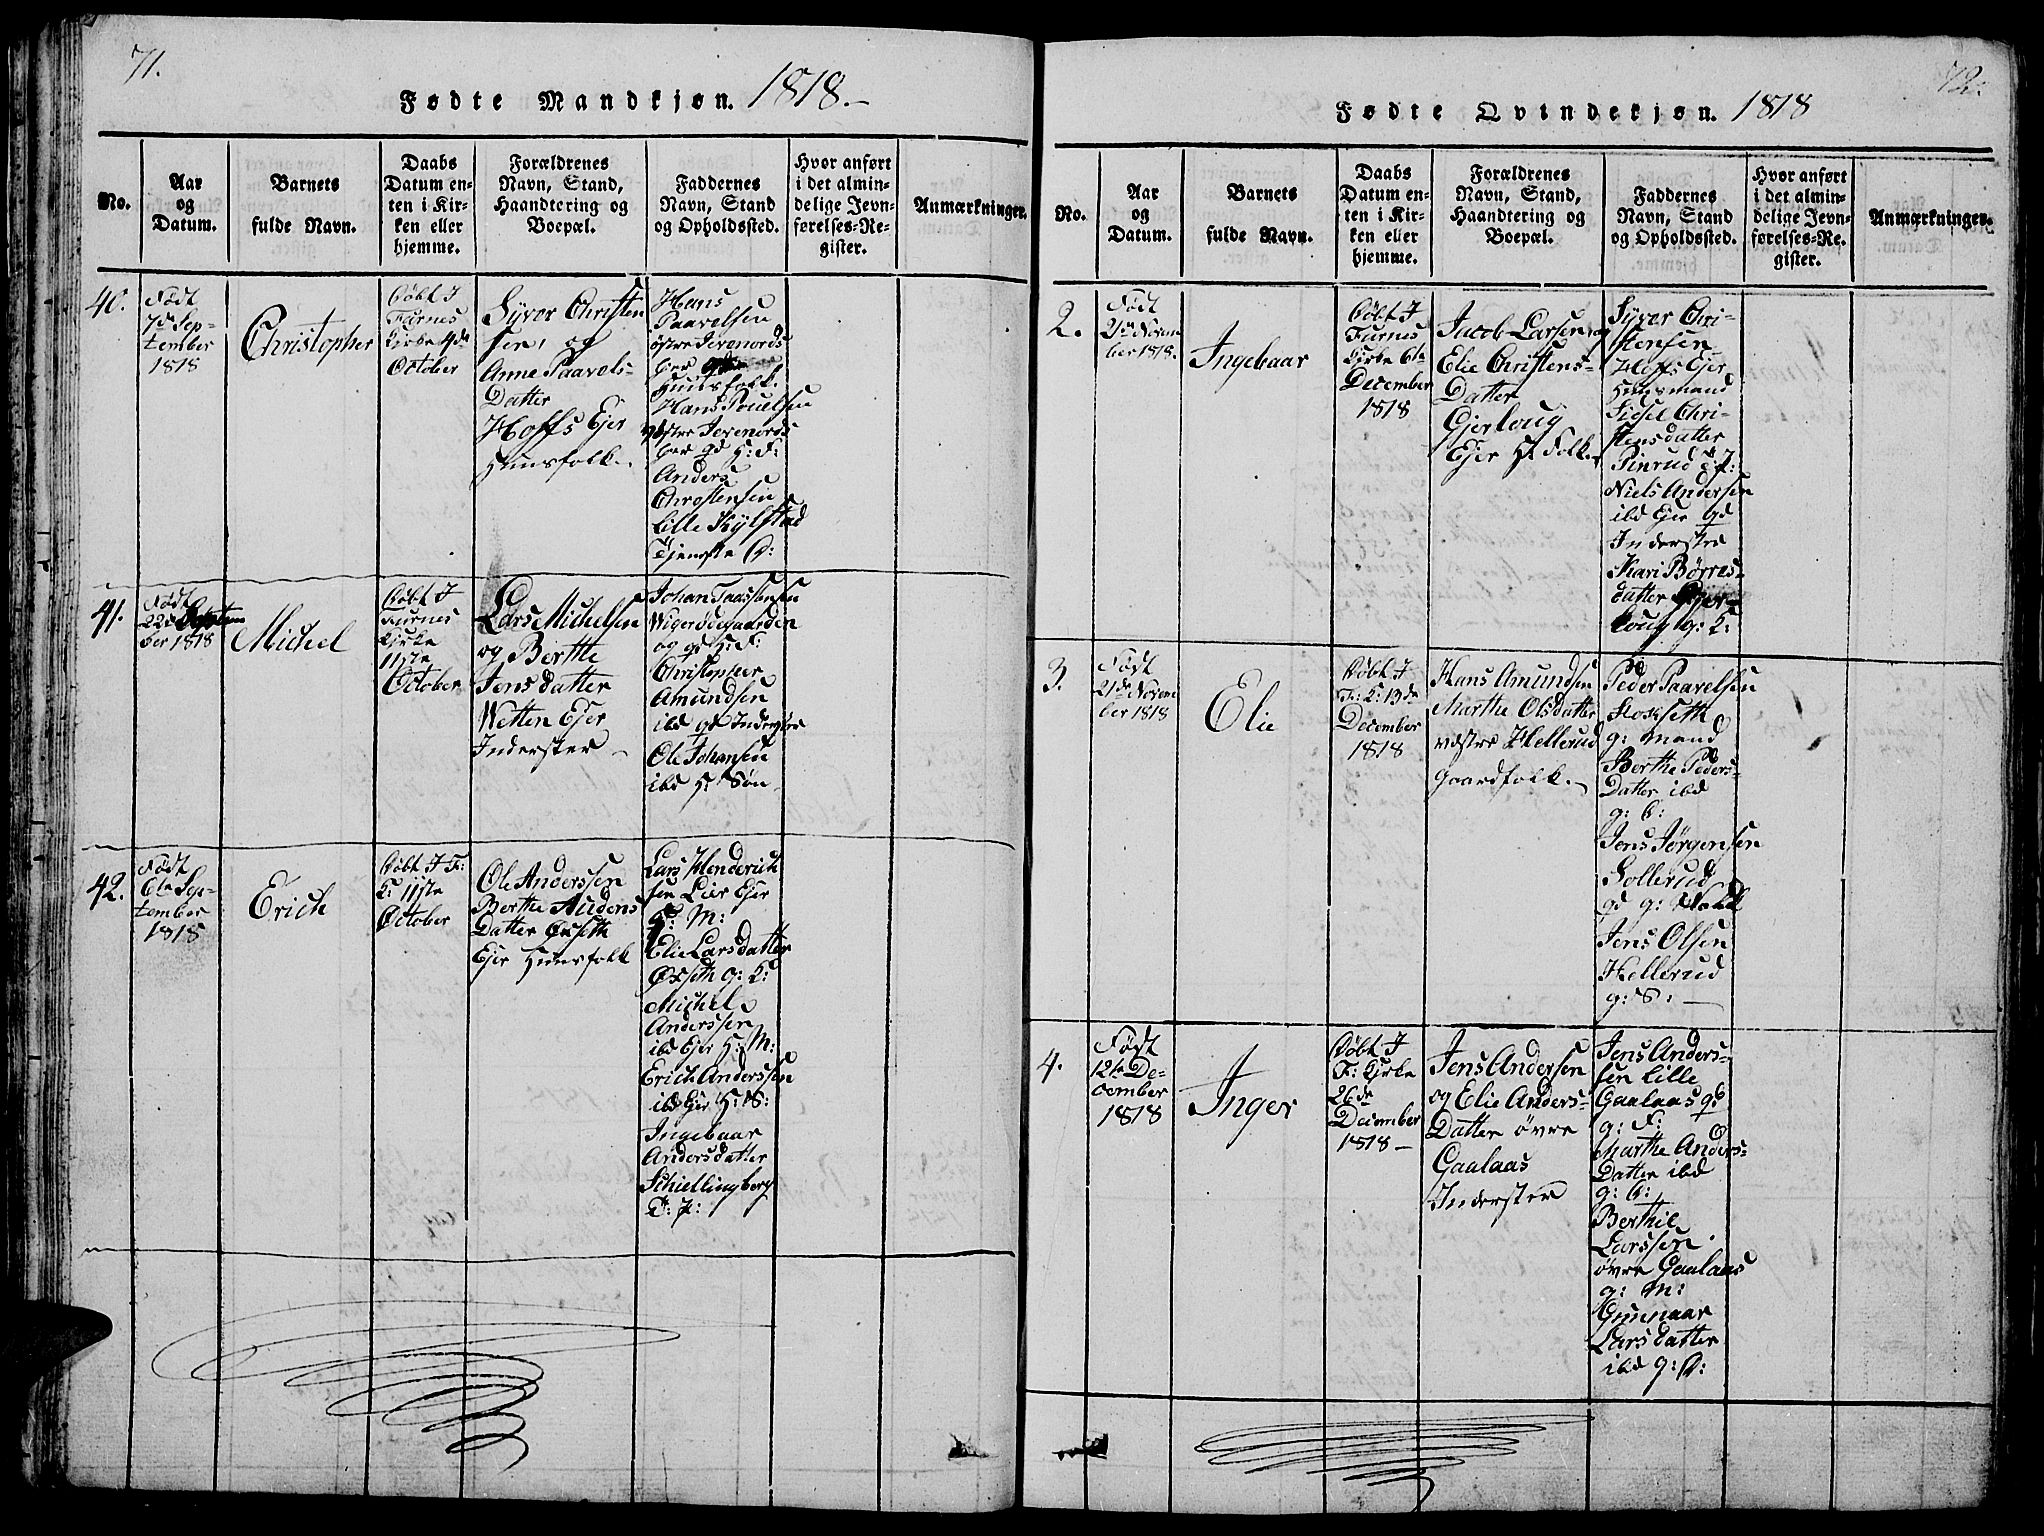 71.
Fødte Mandkjøn. 1818.-
No.
Aar
og
Datum.
Barnets
fulde Navn.
Daabs
Datum en-
ten i Kir-
ken eller
hjemme.
Forældrenes
Navn, Stand,
Haandtering og
Boepæl.
Faddernes
Navn, Stand
og Opholdssted.
Hvor anført
i det almin-
delige Jevn-
førelses-Re-
gister.
Anmærkninger.
40.
Født
7de Sep-
tember
1818
Christopher
Døbt I
Furnes
Kirke 4de
October
Syver Christen
sen, og
Anne Paavels-
Datter
Hoffs Ejer
Huusfolk.
Hans
Paavelsen
østre
Huusfolk.
Hans Pouelsen
vestre
gd H: F:
Anders
Christensen
Lille Kylstad
Tjeneste D:
41.
Født
22de
ber 1818
Michel
Døbt I
Furnes
Kirke
11ste
October
Lars Michelsen
og Berthe
Jens datter
Wetten Ejer
Inderster
Johan
og gd H: F:
Christopher
Amundsen
ibd gd Inderster
Ole Johansen
ibd H: Søn
42.
Født
6te Sep-
tember
1818
Erich
Døbt I F:
K: 11ste
October
Ole Anderssen
Berthe Audens
Datter Øxseth
Ejer Huusfolk
Lars Henderich
sen Lier Ejer
H: M:
Elie Larsdatter
Øxseth g: K:
Michel
Anderssen
ibd Ejer H: M:
Erich Anderssen
ibd Ejer H: S:
Ingebaar
Andersdatter
Schiellingberg
T: P:
72.
Fødte Qvindekjøn. 1818
No.
Aar
og
Datum.
Barnets
fulde Navn.
Daabs
Datum en-
ten i Kir-
ken eller
hjemme.
Forældrenes
Navn, Stand,
Haandtering og
Boepæl.
Faddernes
Navn, Stand
og Opholdssted.
Hvor anført
i det almin-
delige Jevn-
førelses-Re-
gister.
Anmærkninger.
2.
Født
Novem
ber 1818.
Ingebaar
Døbt I
Furnes
Kirke 6te
December
1818
Jacob Larsen og
Elie Christens-
Datter
Gjerloug
Ejer H: Folk
Syver Chri-
stensen
Hoffs Ejer
Huusmand
Sidsel Chri-
stensdatter
Pinrud T: P:
Niels Andersen
ibd Ejer gd
Inderste
Kari Børres-
datter Gjer-
loug g: K:
3.
Født
21de Novem
ber 1818
Elie
Døbt I
F: K: 13de
December
1818
Hans Amundsen
Marthe Olsdatter
vestre Hellerud
Gaardfolk.
Peder Paavelsen
g: Mand
Berthe Peders-
Datter ibd
g: D:
Jens Jørgensen
Sollerud
gd g:
Jens Olsen
Hellerud
g: S:
4.
Født
12te De-
cember
1818
Inger
Døbt I
F: Kirke
26de
December
1818
Jens Andersen
og Elie Anders-
Datter øvre
Gaalaas
Inderster
Jens Anders-
sen Lille
Gaalaas gd
g: F:
Marthe Anders-
Datter ibd
g: D:
Berthil
Larssen
øvre Gaalaas
g: M:
Gunnaar
Larsdatter
ibd g: D: